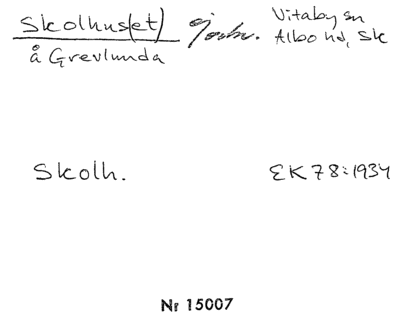 Skolhus(et)
å Grevlunda
Vitaby sn
Albo hd, Sk
Skolh.
EK 78:1934
Nr 15007